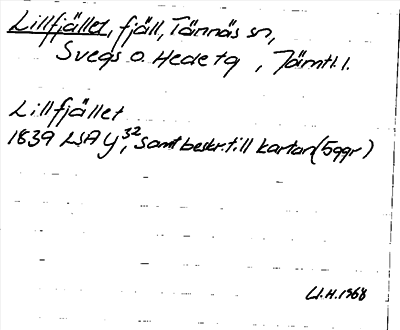 Lillfjället, fjäll, Tännäs sn,
Svegs o. Hede tg, Jämtl. l.
Lillfjället
1839 LSA Y 32, samt beskr. till kartan (5 ggr)
U.H. 1968